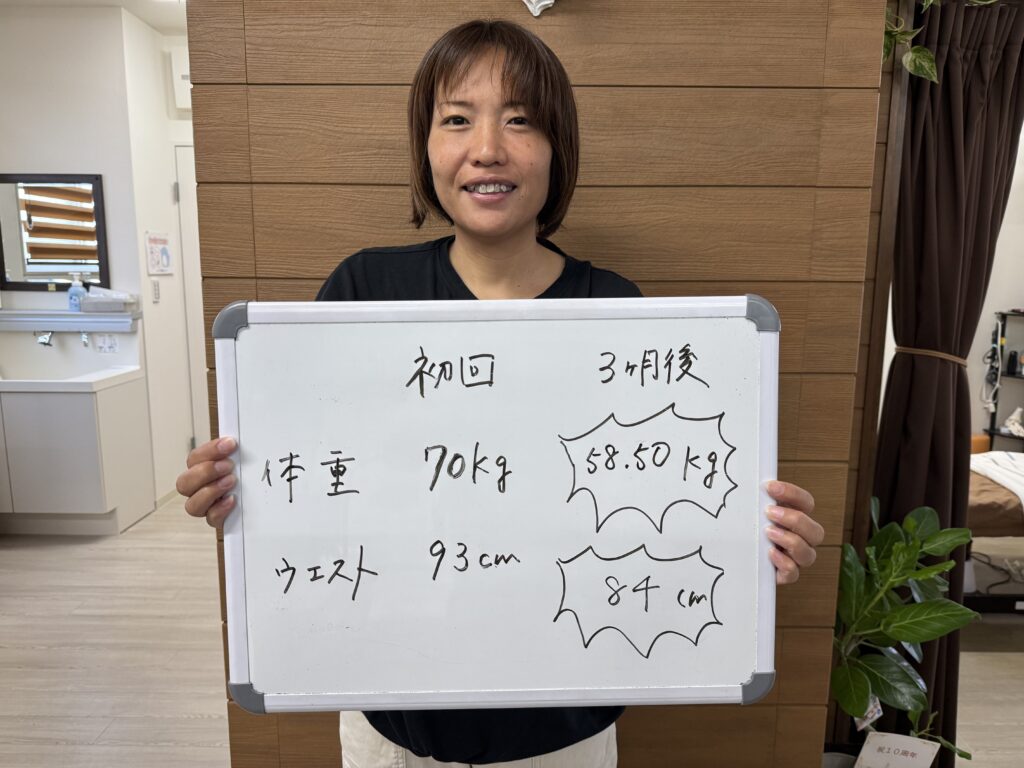 初回 3ヶ月後
体重 70kg 58.50 kg
ウエスト 93cm 84 cm
祝10周年